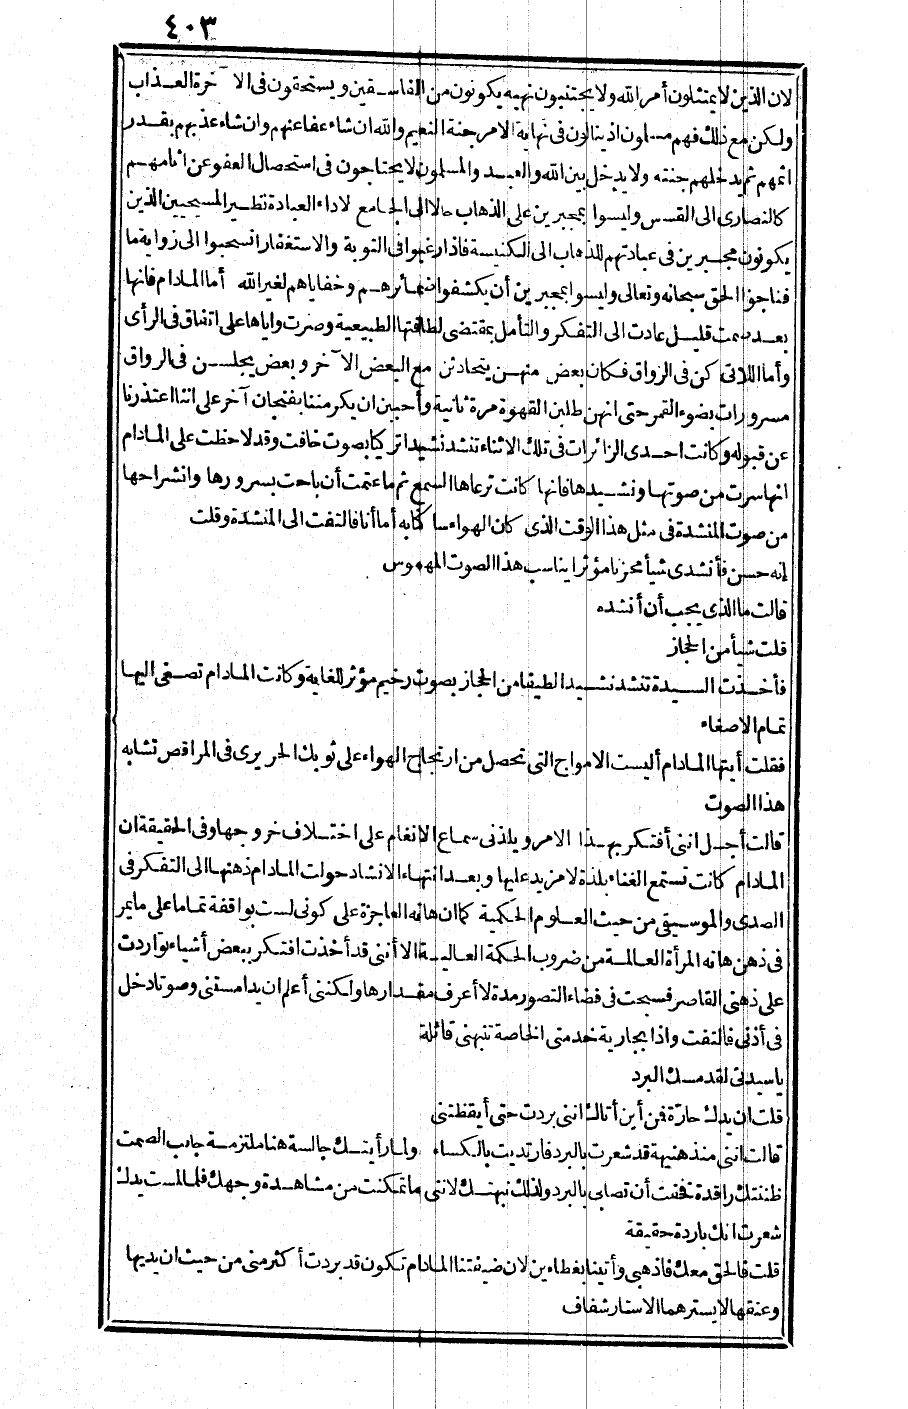 ٤٠٣
لان الذين لا يمتثلون أمر الله ولا يجتنبون نهيه يكونون من الفاسقين ويستحقون فى الآخرة العذاب
ولكن مع ذلك فهم مسلمون اذ ينالون فى نهاية الامر جنة النعيم والله ان شاء عفا عنهم وان شاء عذبهم بقدر
اثمهم ثم يدخلهم جنته ولا يدخل بين الله والعبد والمسلمون لا يحتاجون فى استحصال العفو عن اثامهم
كالنصارى الى القسس وليسوا بمجبرين على الذهاب حالا الى الجامع لاداء العبادة نظير المسيحيين الذين
يكونون مجبرين فى عبادتهم للذهاب الى الكنيسة فاذا رغبوا فى التوبة والاستغفار انسحبوا الى زواية ما
فناجوا الحق سبحانه وتعالى وليسوا بمجبرين أن يكشفوا ضمائرهم وخفاياهم لغير الله أما المادام فانها
بعد صمت قليل عادت الى التفكر والتأمل بمقتضى لطافتها الطبيعية وصرت واياها على اتفاق فى الرأى
وأما اللاتى كن فى الرواق فكان بعض منهن يتحادثن مع البعض الآخر وبعض يجلسن فى الرواق
مسرورات بضوء القمر حتى انهن طلبن القهوة مرة ثانية وأحببن ان يكرمننا بفنجان آخر على اننا اعتذرنا
عن قبوله وكانت احدى الزائرات فى تلك الاثناء تنشد نشيدا تركيا بصوت خافت وقد لاحظت على المادام
انها سرت من صوتها ونشيدها فانها كانت ترعاها السمع ثم ما عتمت أن باحت بسرورها وانشراحها
من صوت المنشدة فى مثل هذا الوقت الذى كان الهواء ساكنا به أما أنا فالتفت الى المنشدة وقلت
إنه حسن فأنشدى شيأ محزنا مؤثرا يناسب هذا الصوت المهموس
قالت ما الذى يجب أن أنشده
قلت شيأ من الحجاز
فأخذت السيدة تنشد نشيدا لطيفا من الحجاز بصوت رخيم مؤثر للغاية وكانت المادام تصغى اليها
تمام الاصغاء
فقلت أيتها المادام أليست الامواج التى تحصل من ارتجاج الهواء على ثوبك الحريرى فى المراقص تشابه
هذا الصوت
قالت أجل اننى أفتكر بهذا الامر ويلذنى سماع الانغام على اختلاف خروجها وفى الحقيقة ان
المادام كانت تستمع الغناء بلذة لا مزيد عليها وبعد انتهاء الانشاد حولت المادام ذهنها الى التفكر فى
الصدى والموسيقى من حيث العلوم الحكمية كما ان هاته العاجزة على كونى لست بواقفة تماما على ما يمر
فى ذهن هاته المرأة العالمة من ضروب الحكمة العالية الا أننى قد أخذت افتكر ببعض أشياء تواردت
على ذهنى القاصر فسبحت فى فضاء التصور مدة لا أعرف مقدارها ولكننى أعلم ان يدا مستنى وصوتا دخل
فى أذنى فالتفت واذا بجارية خدمتى الخاصة تنبهنى قائلة
ياسيدتى لقد مسك البرد
قلت ان يدك حارّة فمن أين أتاك اننى بردت حتى أيقظتنى
قالت اننى منذ هنيهة قد شعرت بالبرد فارتديت بالكساء ولما رأيتك جالسة هنا ملتزمة جانب الصمت
ظننتك راقدة فخفت أن تصابى بالبرد ولذلك نبهتك لاننى ما تمكنت من مشاهدة وجهك فلما لمست يدك
شعرت انك باردة حقيقة
قلت فالحق معك فاذهبى وأتينا بغطاءين لان ضيفتنا المادام تكون قد بردت أكثر منى من حيث ان يديها
وعنقها لا يسترهما الا ستار شفاف